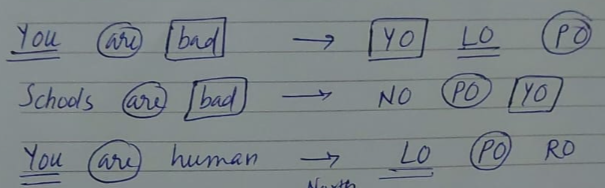 You are bad → YO LO PO
Schools are bad → NO PO YO
You are human → LO PO RO
North